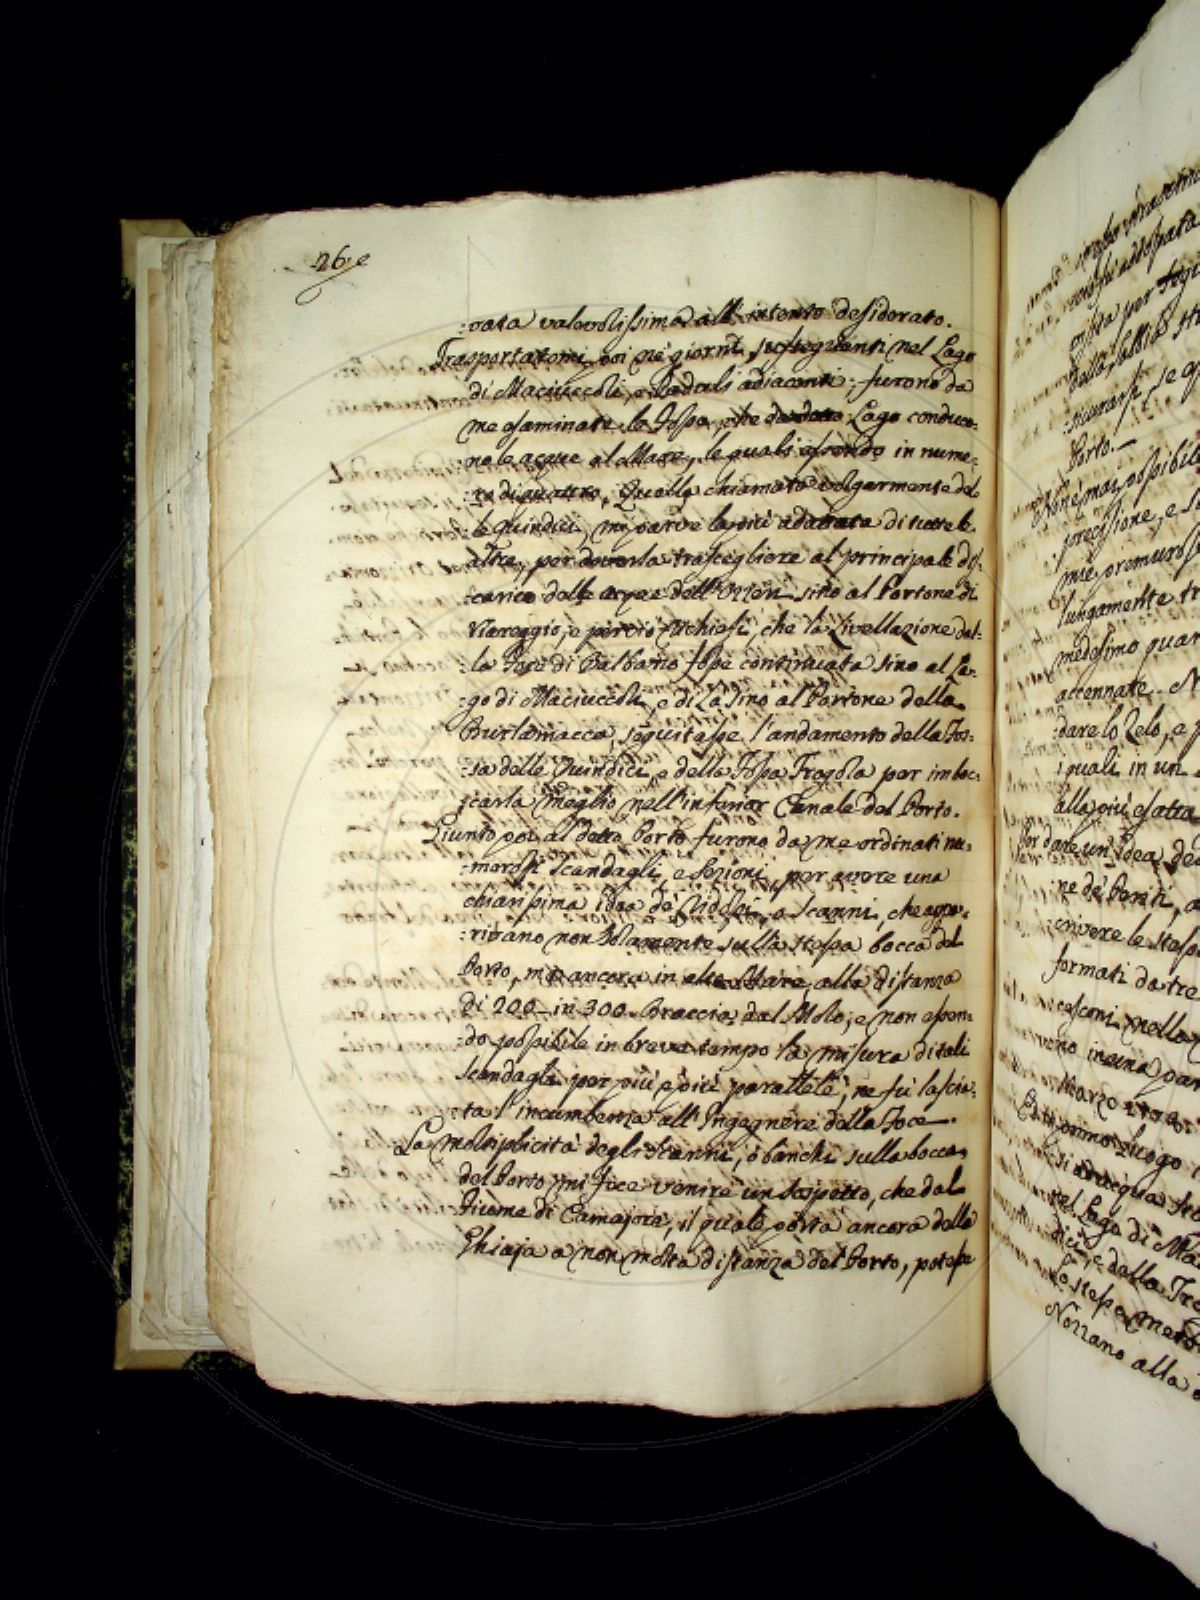 26
:vata valevolissima all'intento desiderato.
Trasportatomi poi nè giorni susseguenti nel Lago
di Maciuccoli, e Paduli adiacenti; furono da
me esaminate le Fosse, che da detto Lago conduco-
:no le acque al Mare, le quali essendo in nume-
:ro di quattro, Quella chiamata volgarmente del-
:le quindici, mi parve la più adattata di tutte le
altre, per doverla trascegliere al principale dis-
:carico delle acque dell'Ozzeri sino al Portone di
Viareggio, e perciò richiesi, che la Livellazione dal-
:la Foce di Balbano fosse continuata sino al La-
:go di Maciuccoli, e di là sino al Portone della
Burlamacca, seguitasse l'andamento della Fos-
:sa delle Quindici, e della Fossa Fragola per imboc-
:carla meglio nell'inferior Canale del Porto.
Giunto poi al detto Porto furono da me ordinati nu-
:merosi Scandagli, e Sezioni, per avere una
chiarissima idea de' Ridossi, o Scanni, che appa-
:rivano non solamente sulla stessa bocca del
Porto, ma ancora in alto Mare, alla distanza
di 200 in 300 Braccia dal Molo; e non essen-
:do possibile in breve tempo la misura di tali
Scandagli per più e più parallele, ne fu lascia-
:ta l'incumbenza all'Ingegnere della Foce.
La moltiplicità degli Scanni, o banchi sulla bocca
del Porto mi fece venire un sospetto, che dal
Fiume di Camajora, il quale porta ancora della
Ghiaja a non molta distanza del Porto, potesse
della stessa
Porto.
Non è mai possibile
precisione, e
mie premuros
lungamente tr
medesimo quan
accennate. N
dare lo Zelo, e p
i quali in un
alla più esatta
Per dare un'Idea de
ne de' Periti, a
:crivere le stess
formati da tre
nella
in una par
Marzo
luogo
nel Lago di Ma
:dici, e della Fra
Lo stesso metodo
Nozzano alla